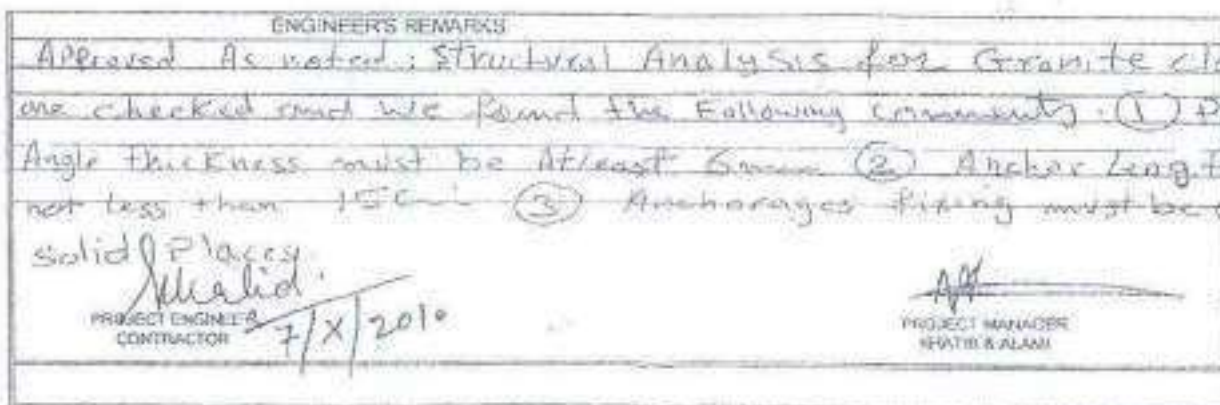 ENGINEER'S REMARKS
Approved As noted: Structural Analysis for Granite cla
are checked and we found the Following comments. (1)
Angle thickness must be Atleast (2) Anchor Lengt
not less than (3) Anchorages fixing must be
solid Places.
Khalid
PROJECT ENGINEER
CONTRACTOR
7/X/2010
PROJECT MANAGER
KHATIB & ALAMI